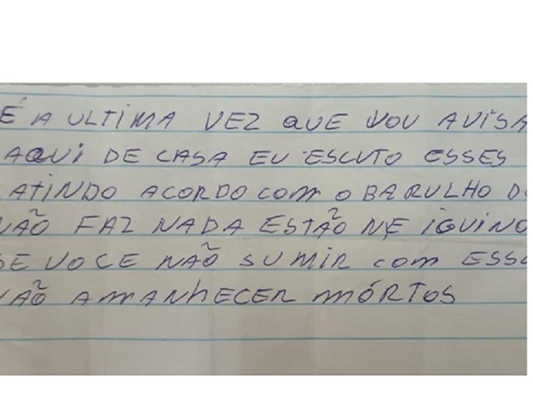 É A ULTIMA VEZ QUE VOU AVISA
AQUI DE CASA EU ESCUTO ESSES
ATINDO ACORDO com o BARULHO D
NÃO FAZ NADA ESTÃO NE IGUINO
SE VOCE NÃO SUMIR com ESS
VÃO AMANHECER MÓRTOS